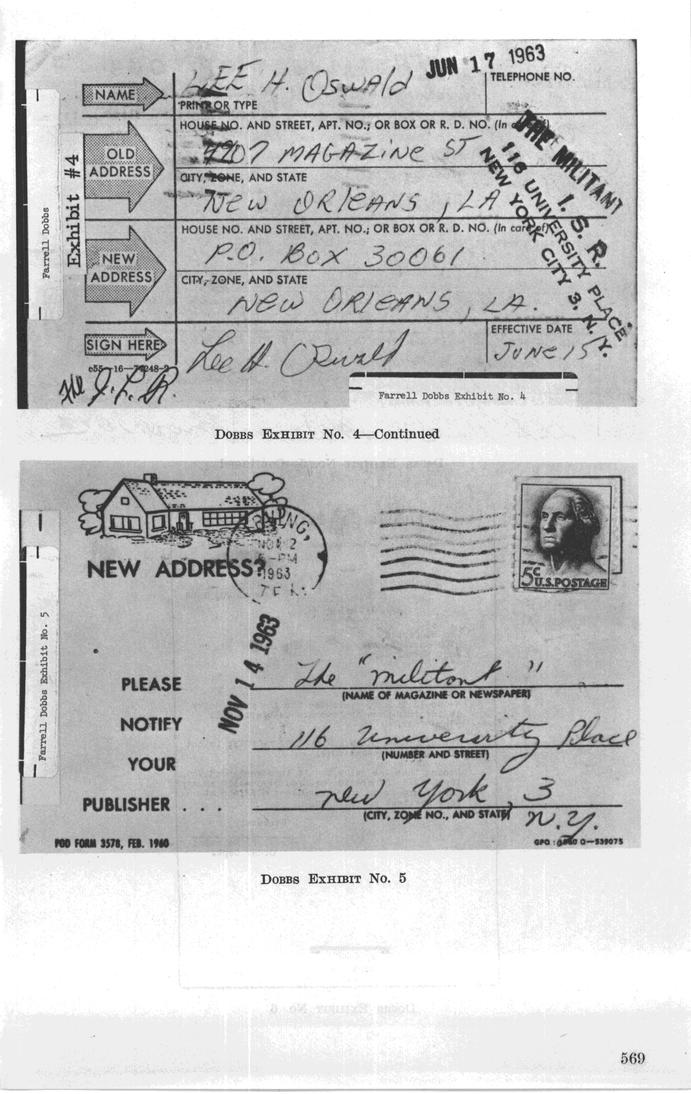 JUN 17 1963
NAME
LEE H. Oswald
PRINT OR TYPE
TELEPHONE NO.
HOUSE NO. AND STREET, APT. NO.; OR BOX OR R. D. NO. (In
OLD
ADDRESS
4907 MAGAZINE ST
CITY, ZONE, AND STATE
NEW ORLEANS, LA
THE MILITANT
I. S. R.
116 UNIVERSITY PLACE
NEW YORK CITY 3, N. Y.
HOUSE NO. AND STREET, APT. NO.; OR BOX OR R. D. NO. (In care of)
NEW
ADDRESS
P.O. BOX 30061
CITY, ZONE, AND STATE
NEW ORLEANS, LA.
SIGN HERE
Lee H. Oswald
EFFECTIVE DATE
JUNE 15
Farrell Dobbs
Exhibit #4
Farrell Dobbs Exhibit No. 4
DOBBS EXHIBIT NO. 4—Continued
NEW ADDRESS?
1963
5c
U.S. POSTAGE
NOV 14 1963
Farrell Dobbs Exhibit No. 5
PLEASE
NOTIFY
YOUR
PUBLISHER . . .
The "militant"
(NAME OF MAGAZINE OR NEWSPAPER)
116 University Place
(NUMBER AND STREET)
new York, 3
(CITY, ZONE NO., AND STATE)
N.Y.
POD FORM 3578, FEB. 1960
DOBBS EXHIBIT NO. 5
569